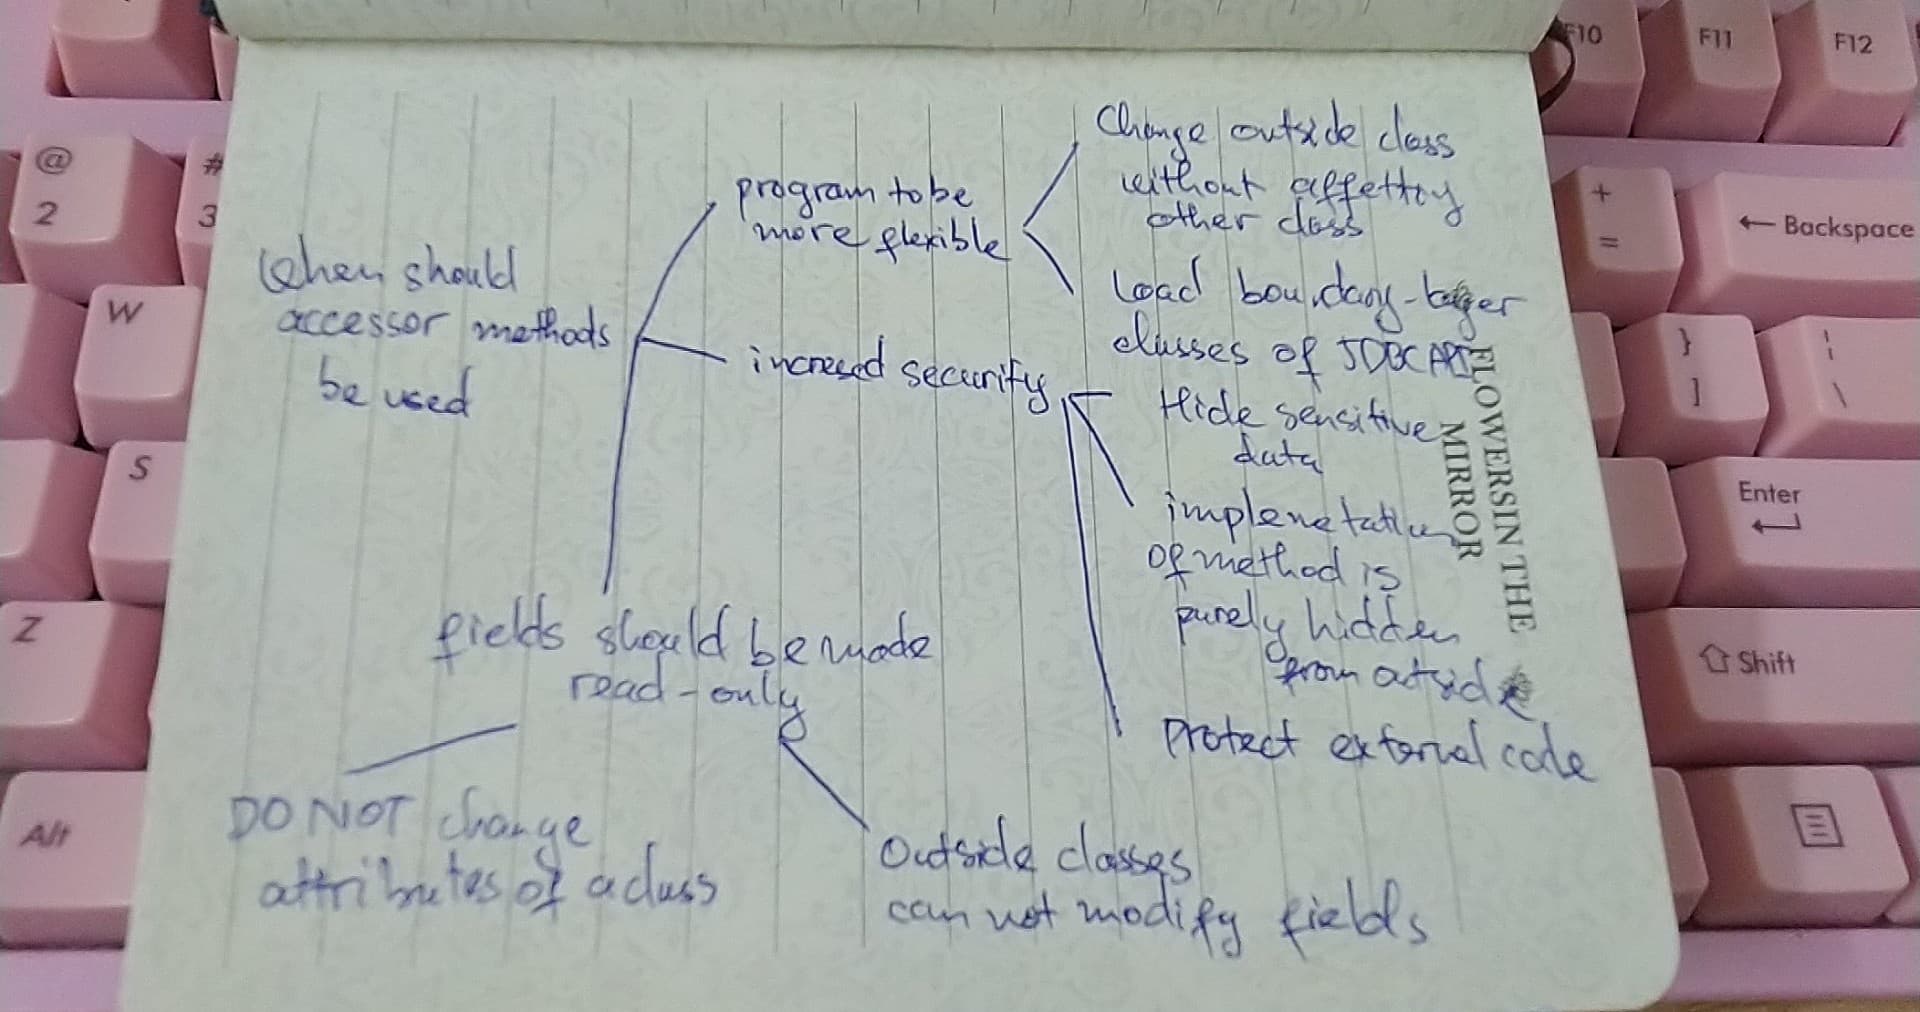 When should
accessor methods
be used
program to be
more flexible
Change outside class
without affettiy
other class
Load boundary-lager
classes of JDBC API
incresed security
Hide sensitive
data
implenetation
of method is
purely hidden
from outside
Protect external code
fields should be made
read-only
DO NOT change
attributes of a class
Outside classes
can not modify fields
FLOWERSIN THE
MIRROR
@
2
#
3
W
S
Z
Alt
F10
F11
F12
+
=
← Backspace
}
]
¦
\
Enter
Shift